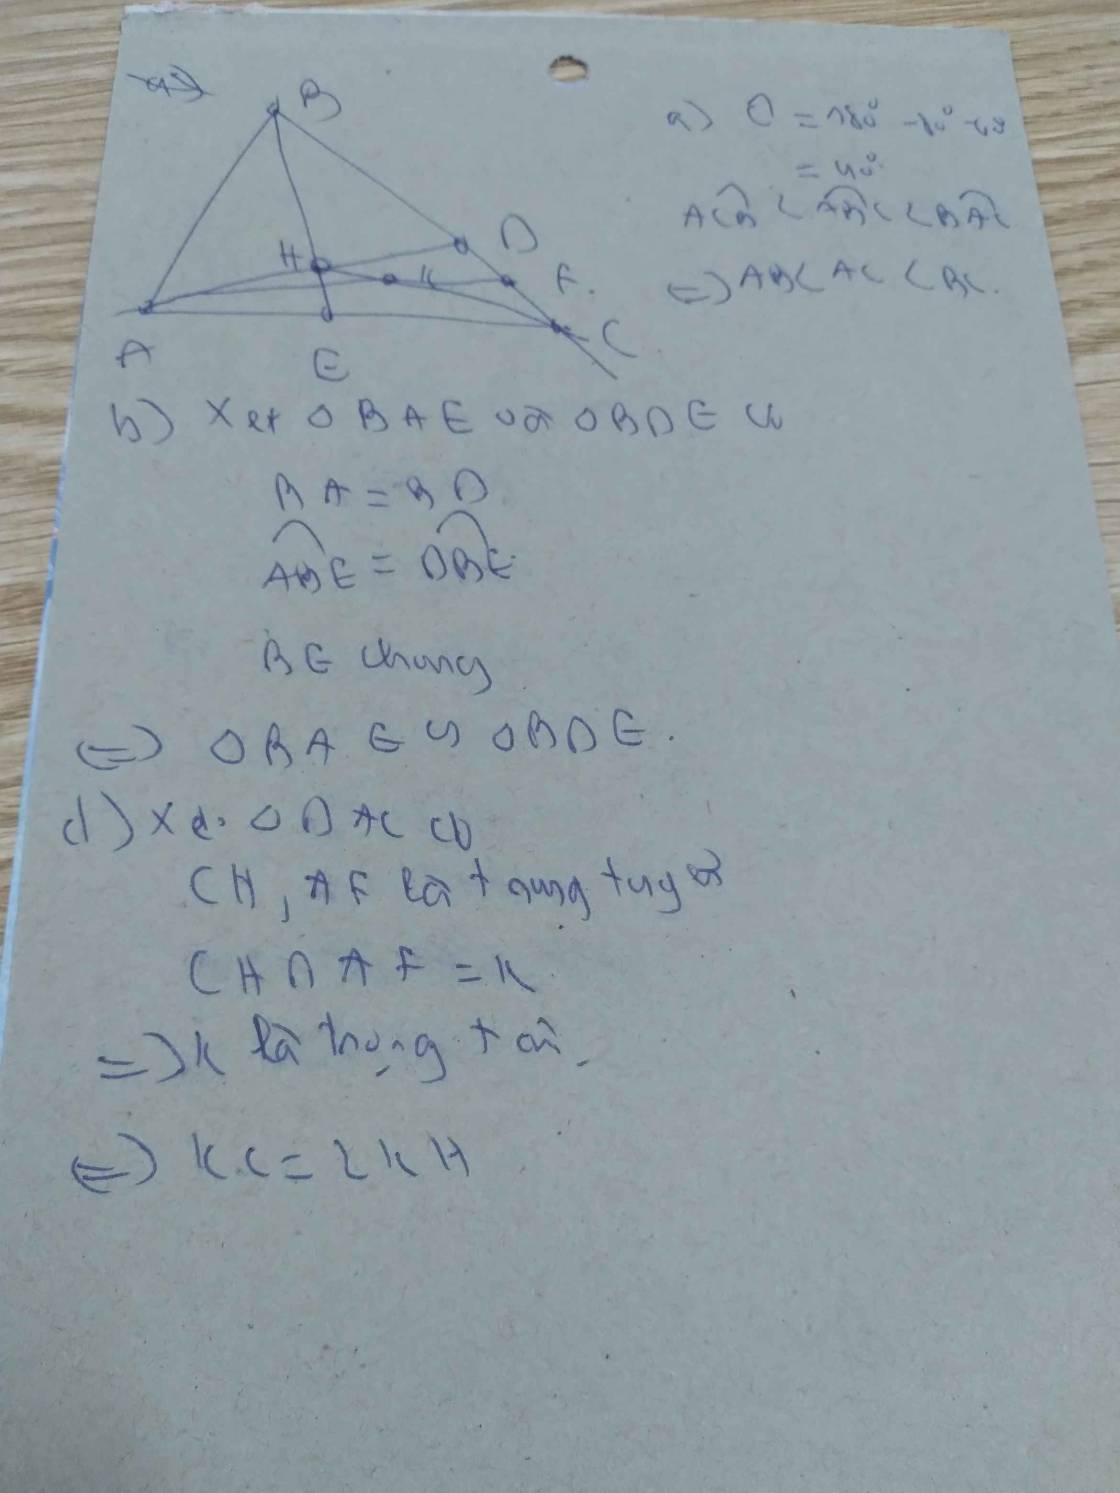 B
D
H
K
F.
A
E
C
a) C = 180° - 80° - 60°
= 40°
ACB < ABC < BAC
=> AB < AC < BC.
b) Xét △BAE và △BDE có
BA = BD
ABE = DBE
BE chung
=> △BAE △BDE.
d) Xét △DAC có
CH, AF là trung tuyến
CH ∩ AF = K
=> K là trọng tâm
=> KC = 2KH